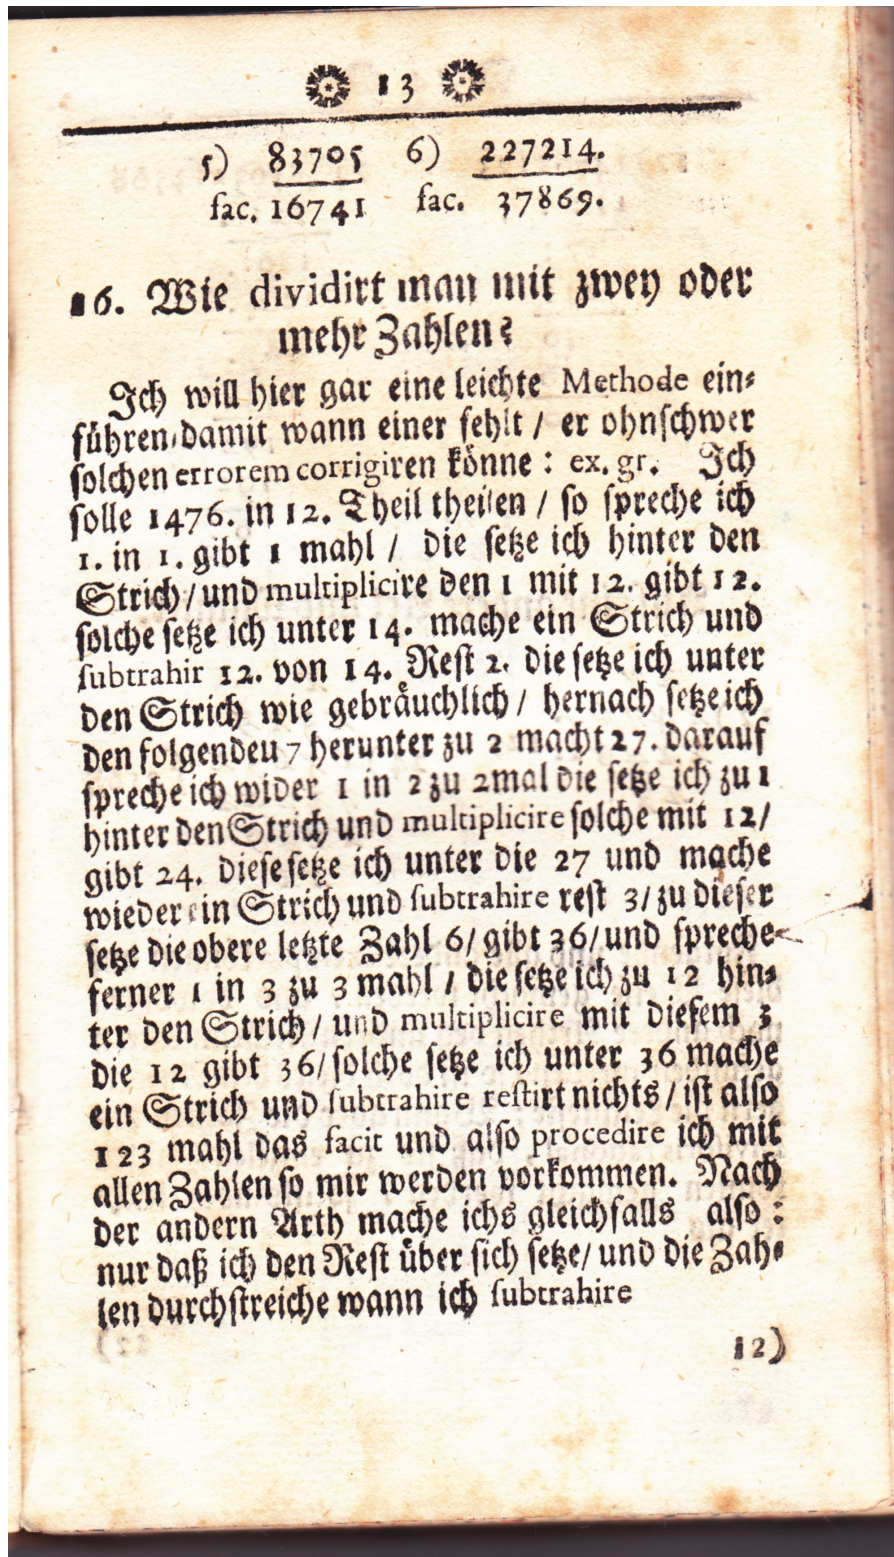 13
5) 83705 6) 227214.
fac. 16741 fac. 37869.
16. Wie dividirt man mit zwey oder
mehr Zahlen?
Ich will hier gar eine leichte Methode ein-
führen/damit wann einer fehlt / er ohnschwer
solchen errorem corrigiren könne : ex. gr. Ich
solle 1476. in 12. Theil theilen / so spreche ich
1. in 1. gibt 1 mahl / die setze ich hinter den
Strich / und multiplicire den 1 mit 12. gibt 12.
solche setze ich unter 14. mache ein Strich und
subtrahir 12. von 14. Rest 2. die setze ich unter
den Strich wie gebräuchlich / hernach setze ich
den folgendeu 7 herunter zu 2 macht 27. darauf
spreche ich wider 1 in 2 zu 2mal die setze ich zu 1
hinter den Strich und multiplicire solche mit 12/
gibt 24. diese setze ich unter die 27 und mache
wieder ein Strich und subtrahire rest 3/ zu dieser
setze die obere letzte Zahl 6/ gibt 36/ und spreche
ferner 1 in 3 zu 3 mahl / die setze ich zu 12 hin-
ter den Strich / und multiplicire mit diesem 3
die 12 gibt 36/ solche setze ich unter 36 mache
ein Strich und subtrahire restirt nichts / ist also
123 mahl das facit und also procedire ich mit
allen Zahlen so mir werden vorkommen. Nach
der andern Arth mache ichs gleichfalls also :
nur daß ich den Rest über sich setze/ und die Zah-
len durchstreiche wann ich subtrahire
12)